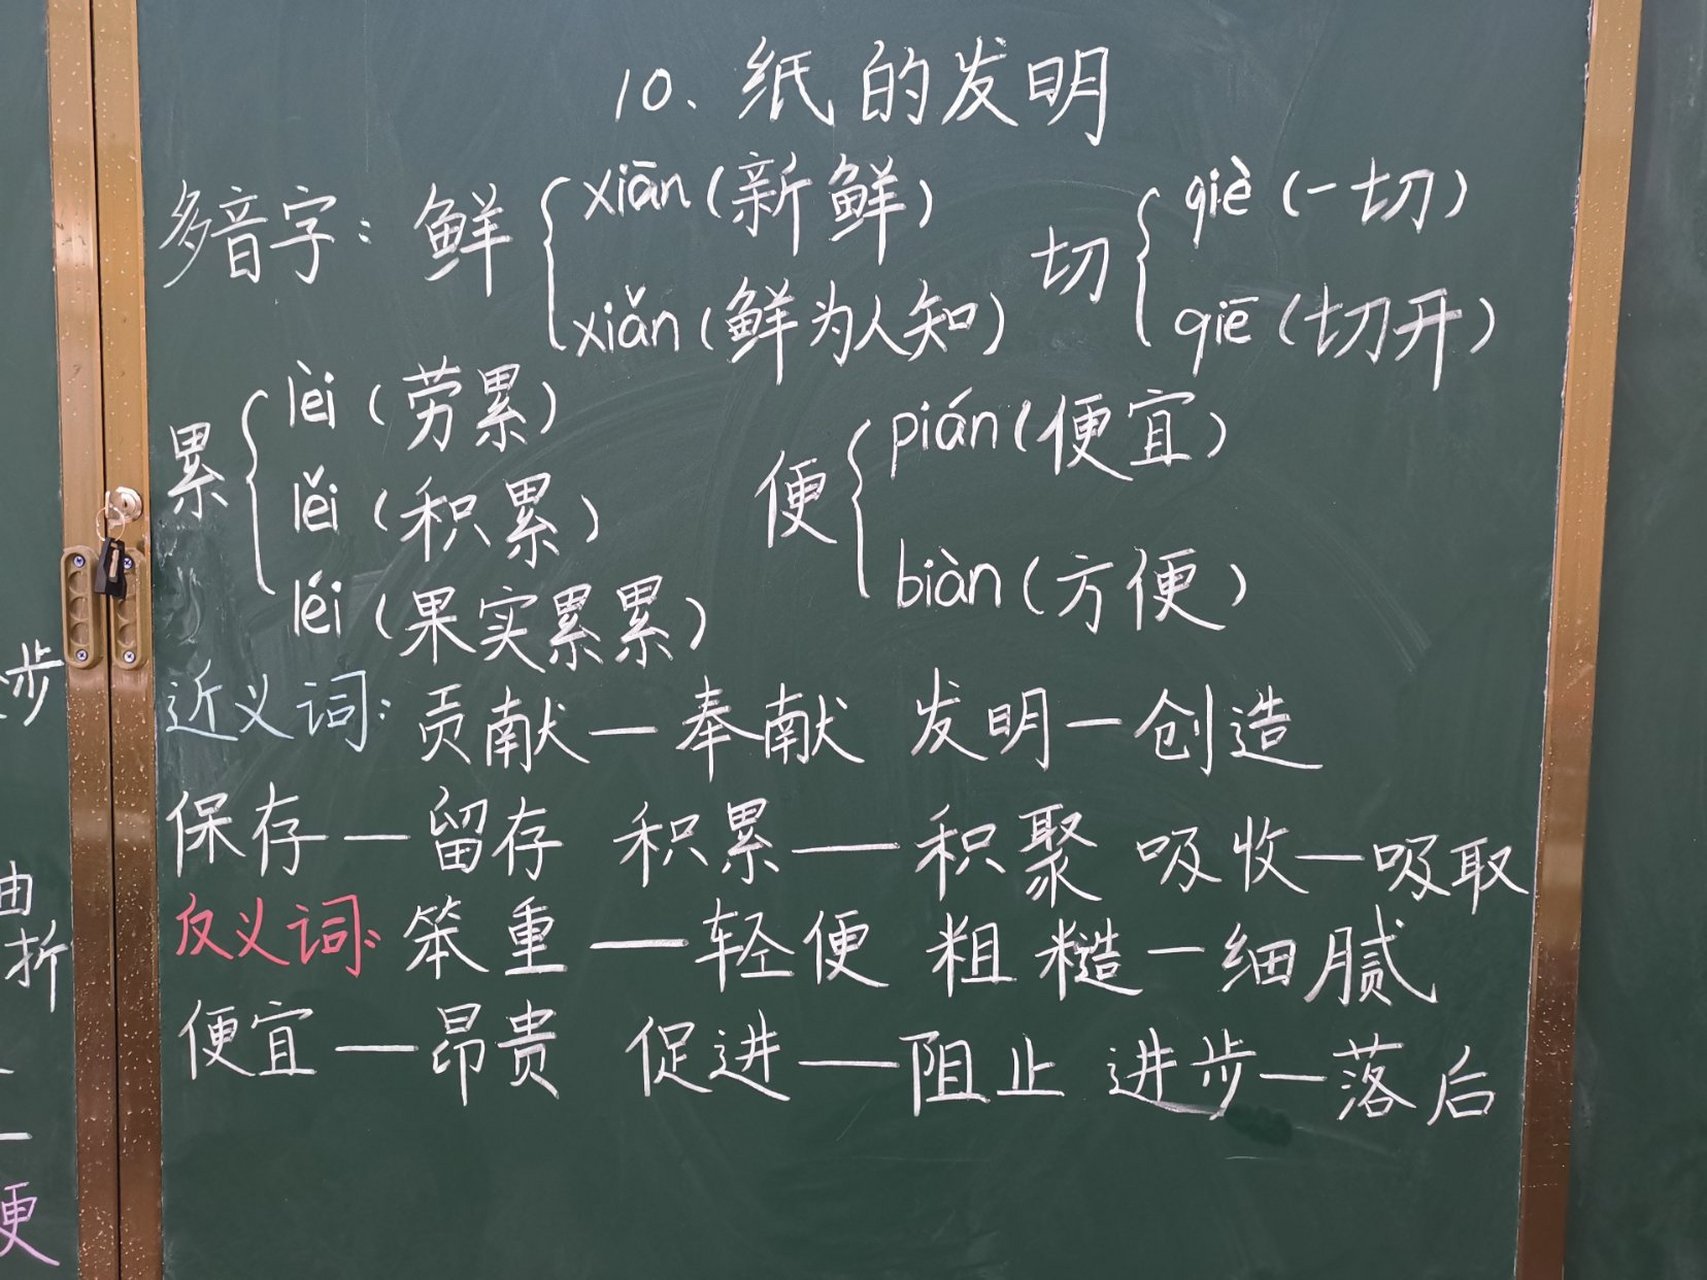 10. 纸的发明
多音字: 鲜 { xiān (新鲜) 切 { qiè (一切)
xiǎn (鲜为人知) qiē (切开)
累 { lèi (劳累) 便 { pián (便宜)
lěi (积累)
léi (果实累累) biàn (方便)
近义词: 贡献—奉献 发明—创造
保存—留存 积累—积聚 吸收—吸取
反义词: 笨重—轻便 粗糙—细腻
便宜—昂贵 促进—阻止 进步—落后
步
由
折
更